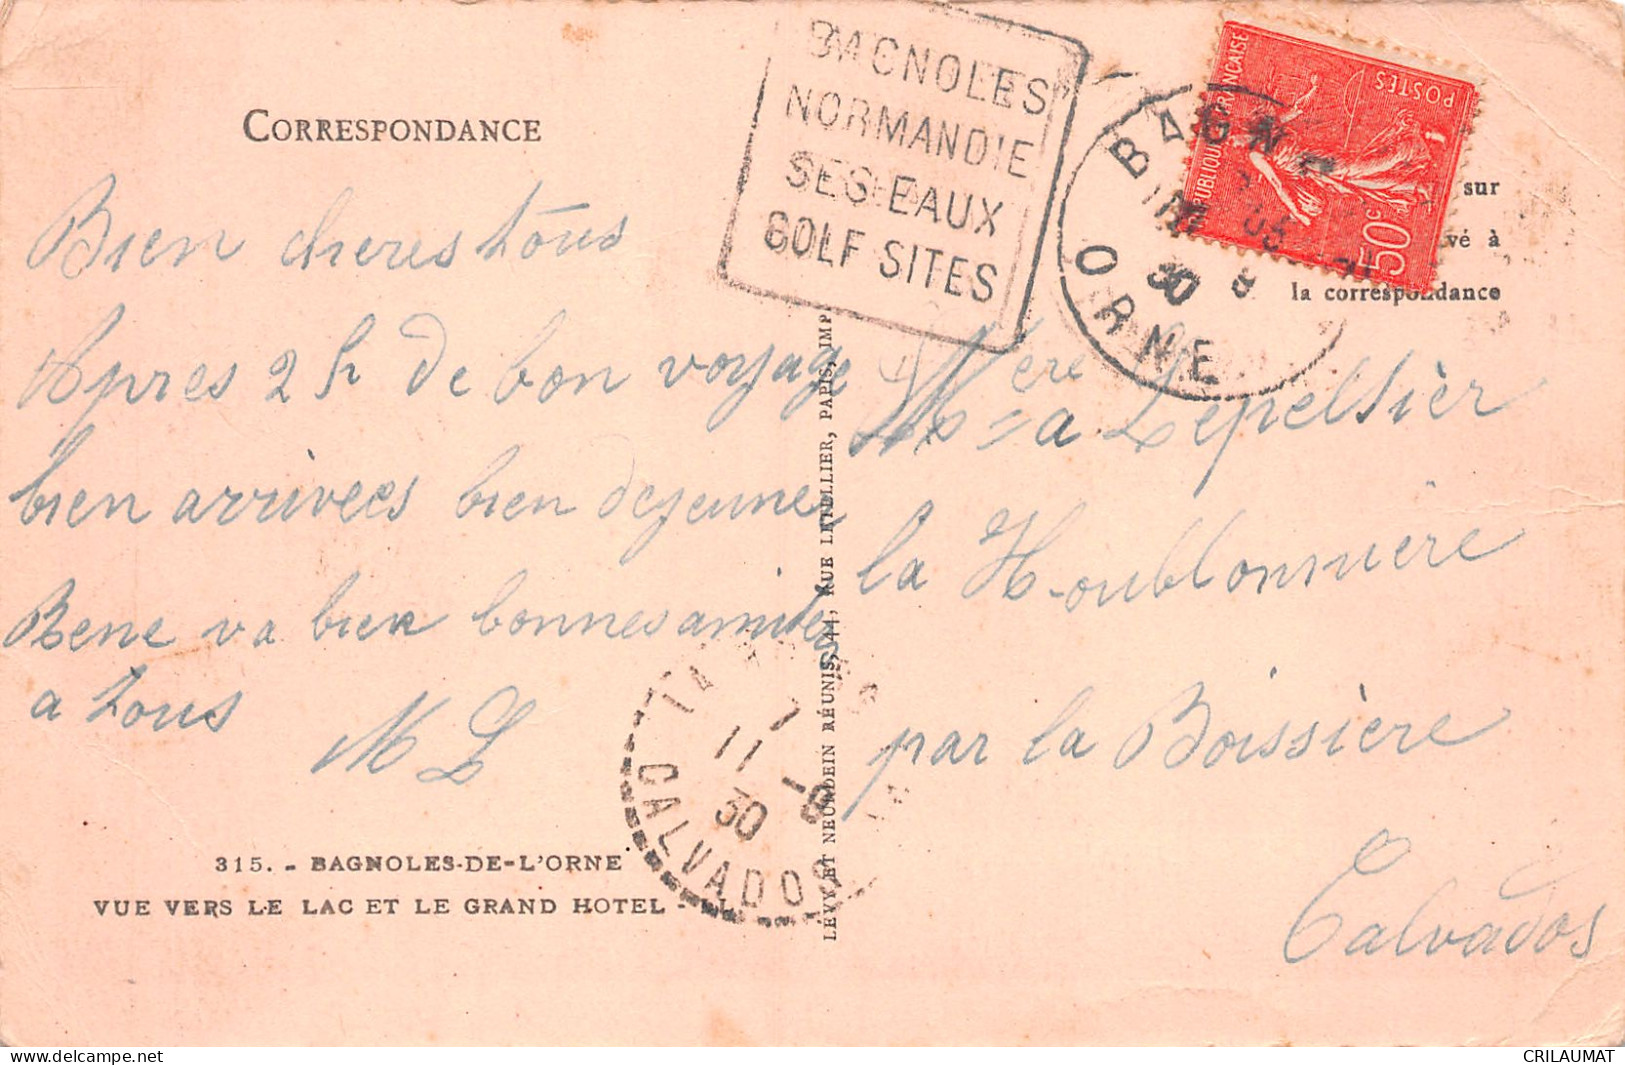 CORRESPONDANCE
BAGNOLES
NORMANDIE
SES EAUX
GOLF SITES
BAGN
ORNE
30
REPUBLIQUE FRANCAISE
POSTES
50c
sur
vé à
la correspondance
Bien cheres tous
Apres 2 h de bon voyage
bien arrivees bien dejeuner
Rene va bien bonnes amities
a tous
M L
Lepeltier
la Houblonniere
par la Boissière
Calvados
11 -8
30
CALVADOS
315. - BAGNOLES-DE-L'ORNE
VUE VERS LE LAC ET LE GRAND HOTEL - LL.
LÉVY ET NEURDEIN RÉUNIS, 44, RUE LETELLIER, PARIS, IMP
CRILAUMAT